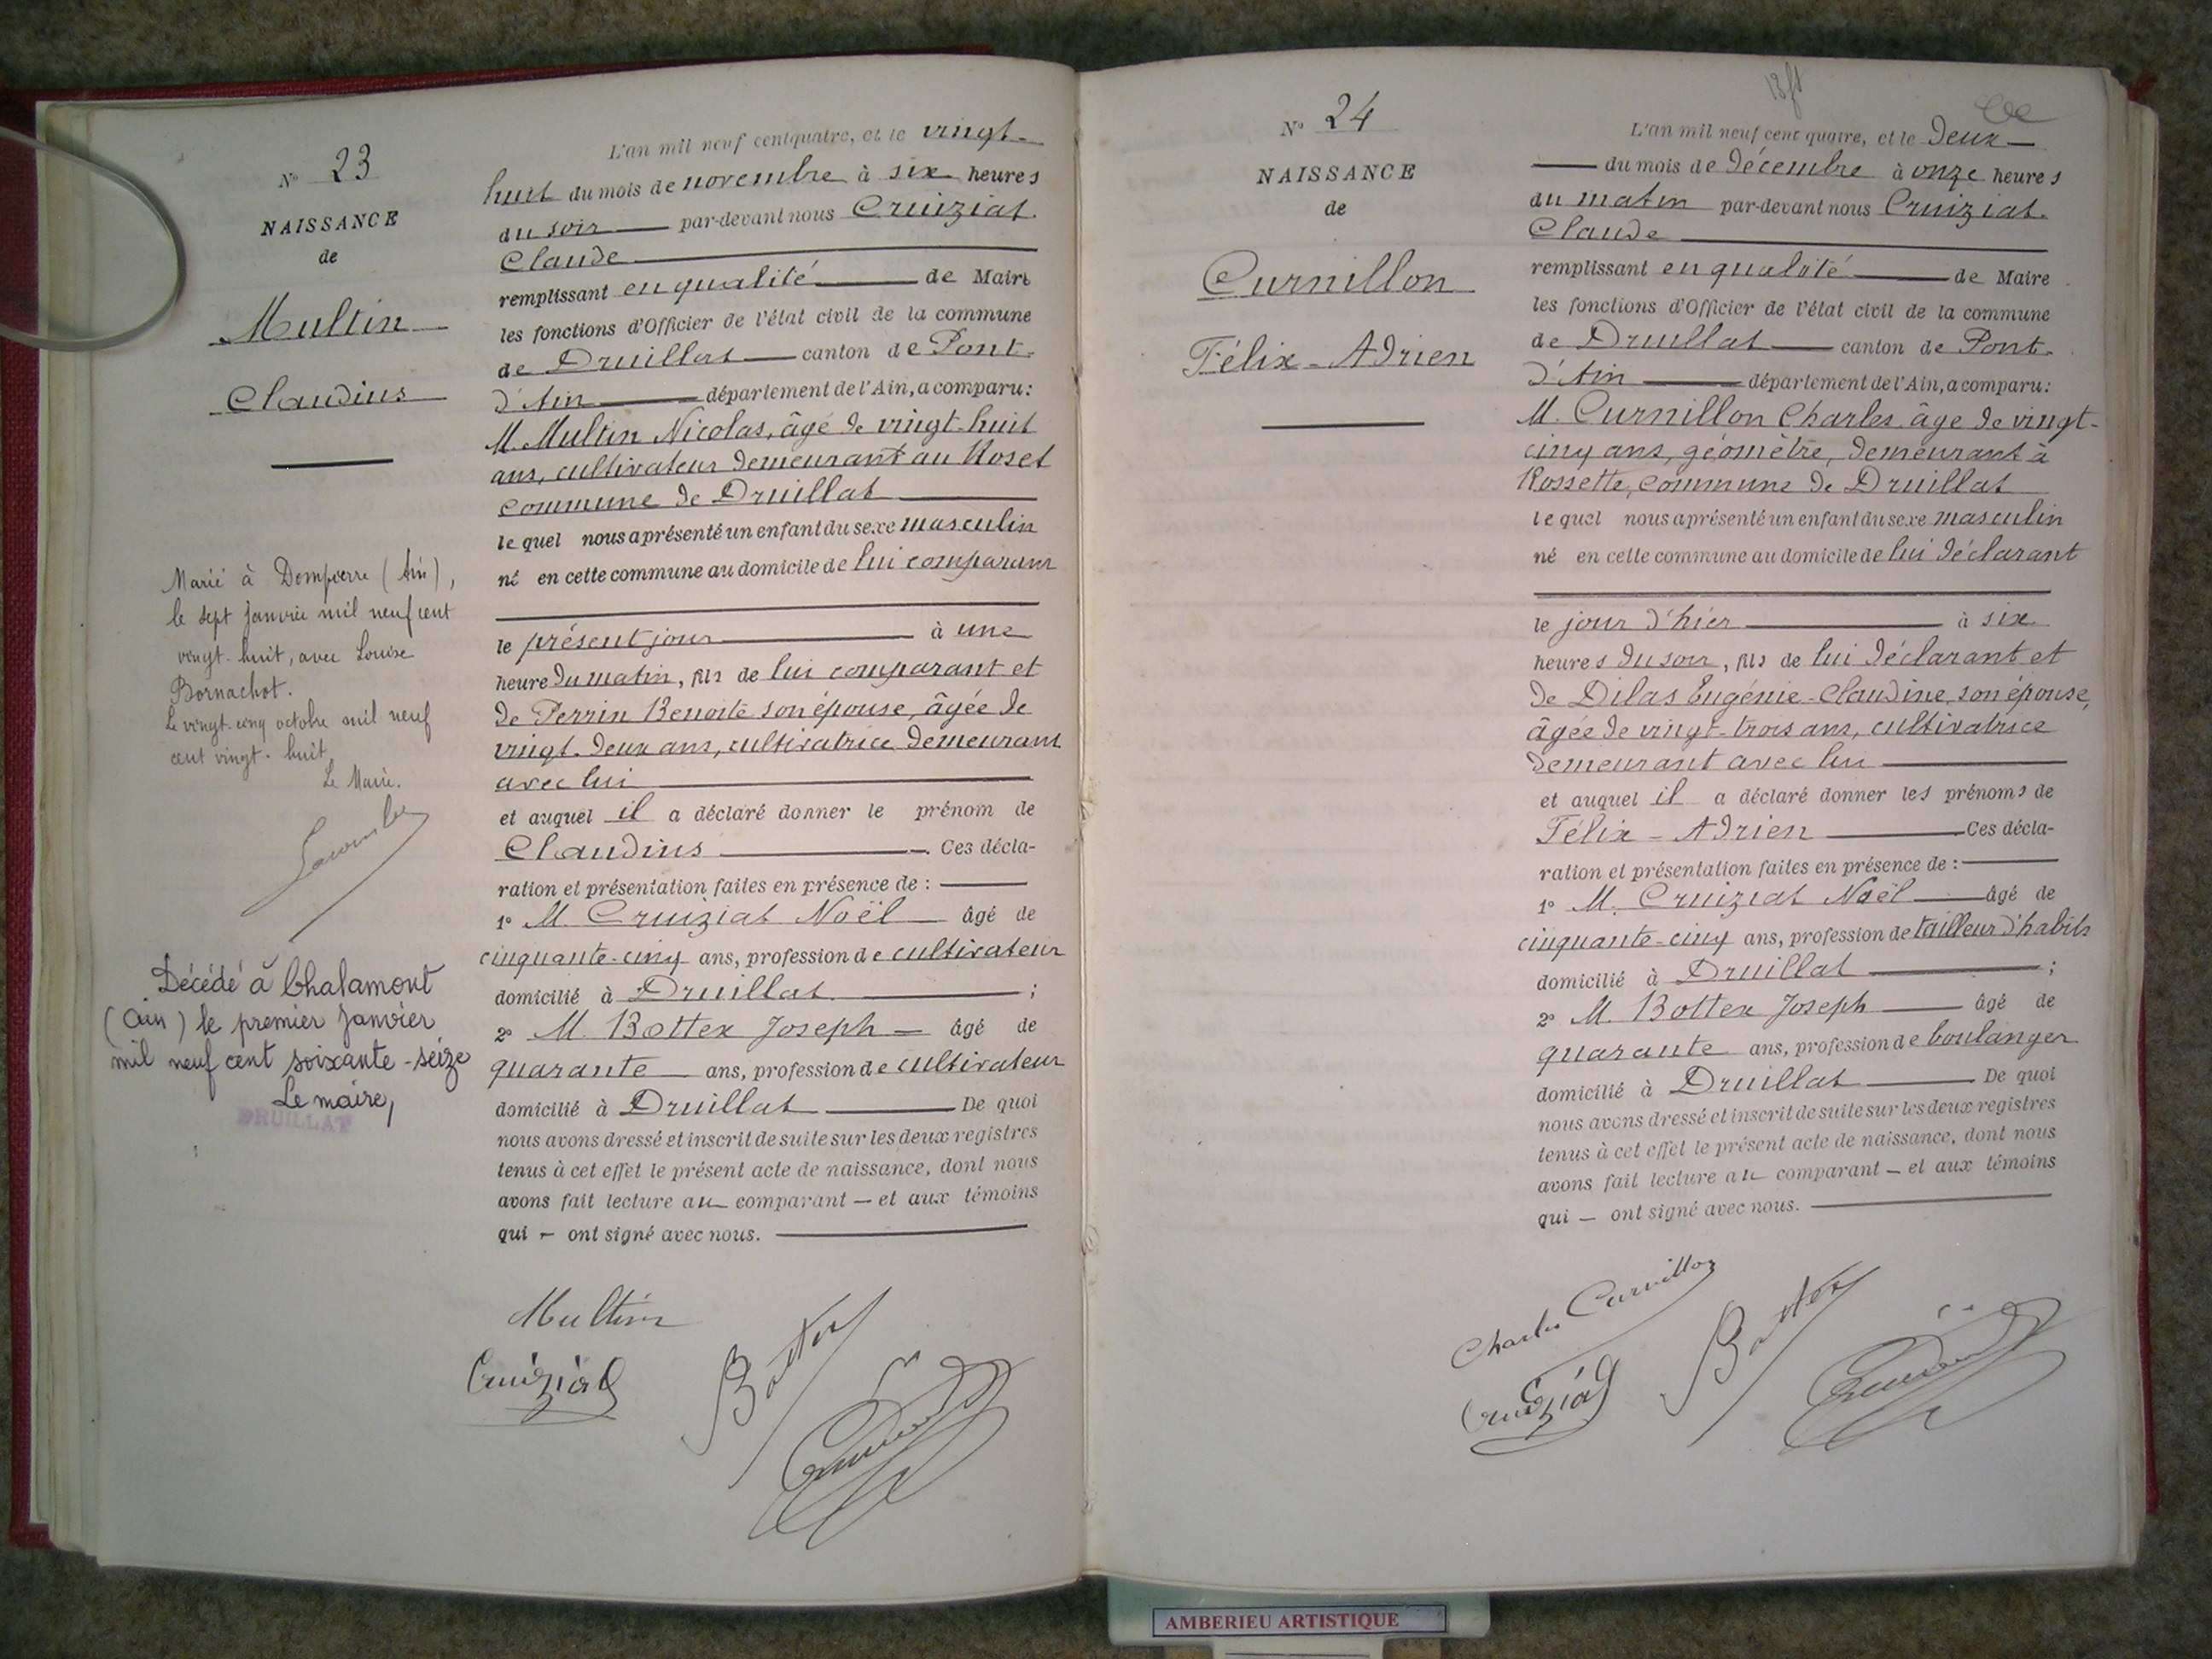 N° 23
NAISSANCE
de
Multin
Claudius
Marié à Dompierre (Ain),
le sept janvier mil neuf cent
vingt-huit, avec Louise
Bornachot.
Le vingt-cinq octobre mil neuf
cent vingt-huit
Le Maire.
Décédé à Chalamont
(Ain) le premier janvier
mil neuf cent soixante-seize
Le maire,
DRUILLAT
L'an mil neuf cent quatre, et le vingt-
huit du mois de novembre à six heures
du soir par-devant nous Cruiziat
Claude
remplissant en qualité de Maire
les fonctions d'Officier de l'état civil de la commune
de Druillat canton de Pont-
d'Ain département de l'Ain, a comparu:
M. Multin Nicolas, âgé de vingt-huit
ans, cultivateur demeurant au Roset
commune de Druillat
lequel nous a présenté un enfant du sexe masculin
né en cette commune au domicile de lui comparant
le présent jour à une
heure du matin, fils de lui comparant et
de Perrin Benoite son épouse, âgée de
vingt-deux ans, cultivatrice demeurant
avec lui
et auquel il a déclaré donner le prénom de
Claudius. Ces décla-
ration et présentation faites en présence de :
1° M. Cruiziat Noël âgé de
cinquante-cinq ans, profession de cultivateur
domicilié à Druillat ;
2° M. Bottex Joseph âgé de
quarante ans, profession de cultivateur
domicilié à Druillat De quoi
nous avons dressé et inscrit de suite sur les deux registres
tenus à cet effet le présent acte de naissance, dont nous
avons fait lecture au comparant — et aux témoins
qui — ont signé avec nous.
Multin
Cruiziat
Bottex
N° 24
NAISSANCE
de
Curnillon
Félix-Adrien
L'an mil neuf cent quatre, et le deux
du mois de décembre à onze heures
du matin par-devant nous Cruiziat
Claude
remplissant en qualité de Maire
les fonctions d'Officier de l'état civil de la commune
de Druillat canton de Pont-
d'Ain département de l'Ain, a comparu:
M. Curnillon Charles âgé de vingt-
cinq ans, géomètre, demeurant à
Rossette, commune de Druillat
lequel nous a présenté un enfant du sexe masculin
né en cette commune au domicile de lui déclarant
le jour d'hier à six
heures du soir, fils de lui déclarant et
de Dilas Eugénie-Claudine, son épouse,
âgée de vingt-trois ans, cultivatrice
demeurant avec lui
et auquel il a déclaré donner les prénoms de
Félix-Adrien Ces décla-
ration et présentation faites en présence de :
1° M. Cruiziat Noël âgé de
cinquante-cinq ans, profession de tailleur d'habits
domicilié à Druillat ;
2° M. Bottex Joseph âgé de
quarante ans, profession de boulanger
domicilié à Druillat De quoi
nous avons dressé et inscrit de suite sur les deux registres
tenus à cet effet le présent acte de naissance, dont nous
avons fait lecture au comparant — et aux témoins
qui — ont signé avec nous.
Charles Curnillon
Cruiziat
Bottex
AMBERIEU ARTISTIQUE